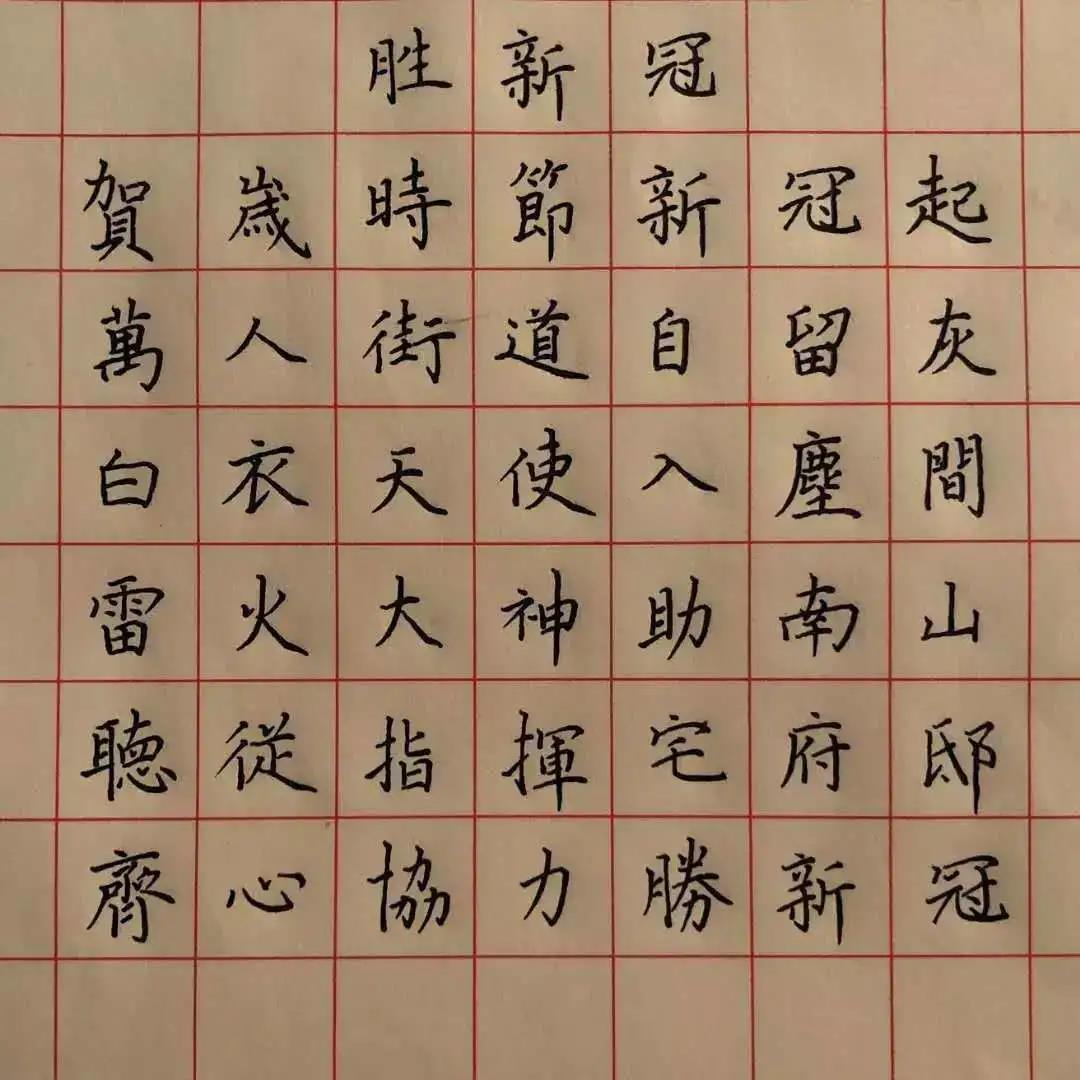 胜新冠
賀歲時節新冠起
萬人街道自留灰
白衣天使入塵間
雷火大神助南山
聽從指揮宅府邸
齊心協力勝新冠